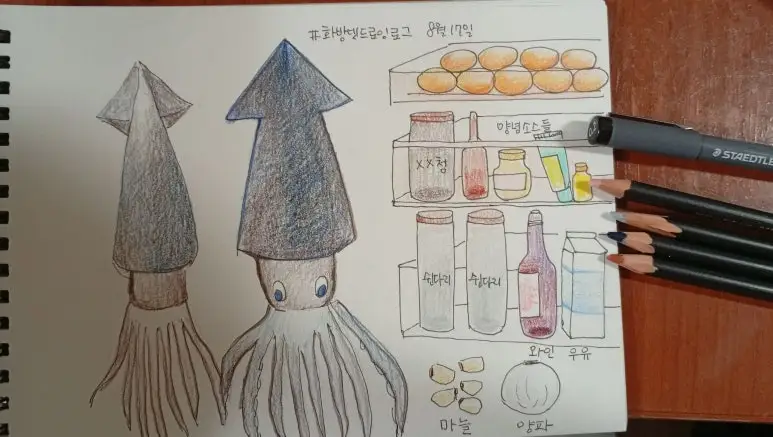 #화방넷드로잉로그 8월 17일
양념소스들
XX청
쉰다리 쉰다리
와인 우유
마늘 양파
STAEDTLER